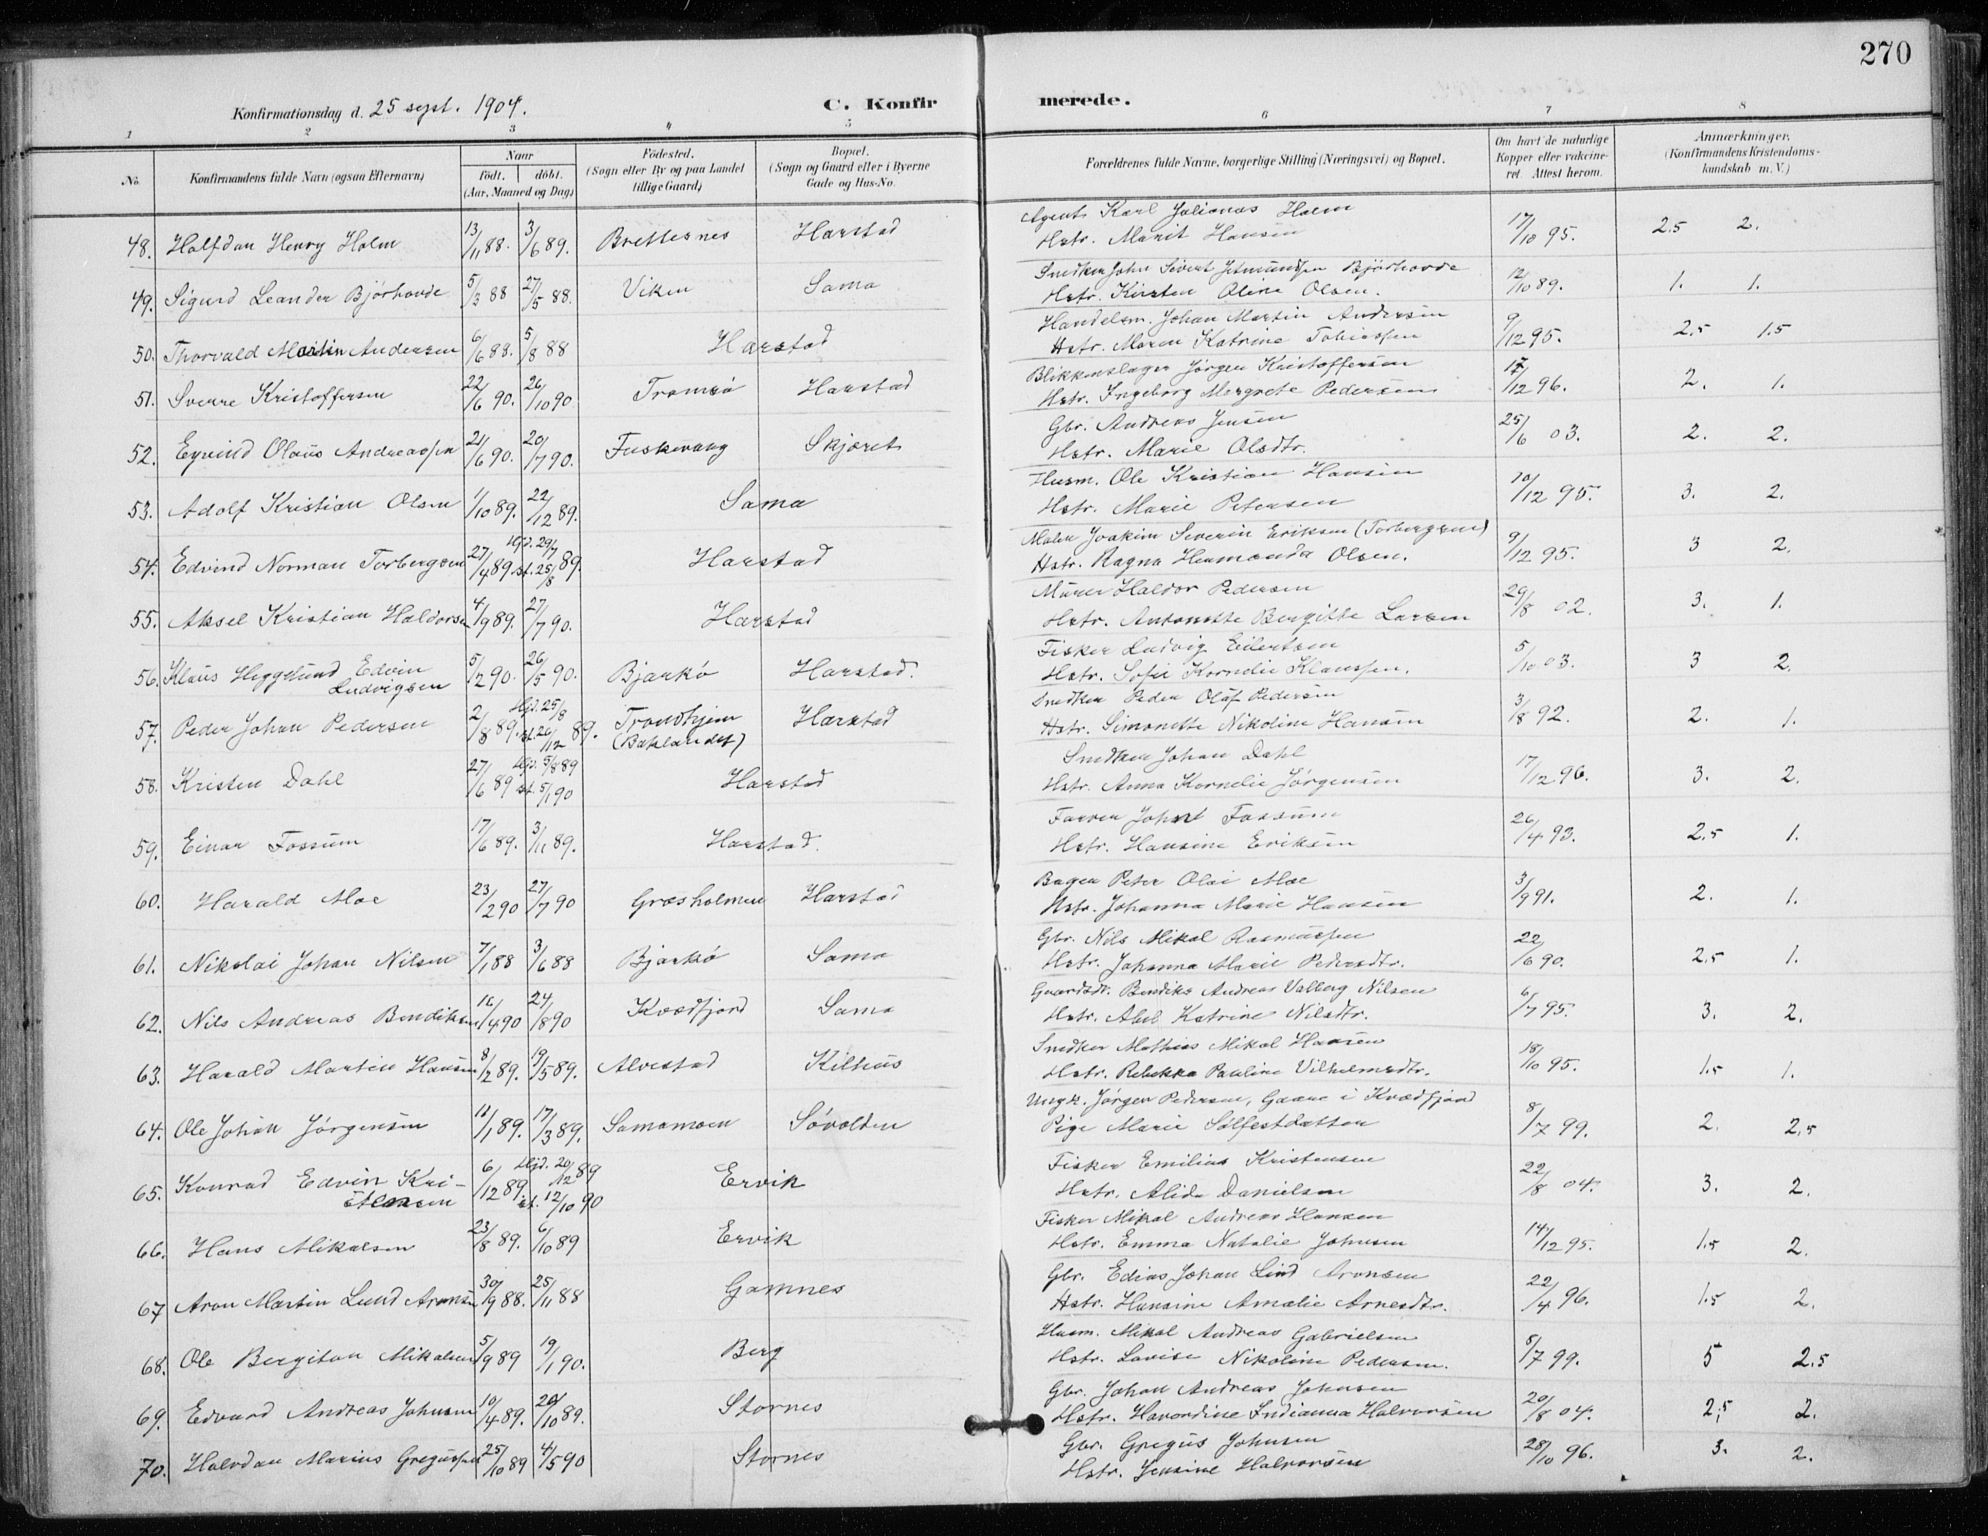 270
Konfirmationsdag d. 25 sept. 1904.
C. Konfirmerede.
1 2 3 4 5 6 7 8
No. Konfirmandens fulde Navn (ogsaa Efternavn) Naar født. døbt. (Aar, Maaned og Dag) Fødested. (Sogn eller By og paa Landet tillige Gaard) Bopæl. (Sogn og Gaard eller i Byerne Gade og Hus-No. Forældrenes fulde Navne, borgerlige Stilling (Næringsvei) og Bopæl. Om havt de naturlige Kopper eller vakcineret. Attest herom. Anmærkninger. (Konfirmandens Kristendomskundskab m. V.)
48. Halfdan Henry Holm 13/11 88. 3/6 89. Brettesnes Harstad Agent Karl Julianas Holm Hstr. Marit Hansen 17/10 95. 2.5 2.
49. Sigurd Leander Bjørhovde 5/3 88 27/5 88. Viken Sama Snedker John Sivert Bjørhovde Hstr. Kirsten Oline Olsen. 12/10 89. 1. 1.
50. Thorvald Martin Andersen 6/6 88. 5/8 88 Harstad Handelsm. Johan Martin Andersen Hstr. Maren Katrine Tobiassen 9/12 95. 2.5 1.5
51. Sverre Kristoffersen 22/6 90. 26/10 90 Tromsø Harstad Blikkenslager Jørgen Kristoffersen Hstr. Ingeborg Mergrete Pedersen 17/12 96. 2. 1.
52. Eyvind Olaus Andreassen 21/6 90. 20/7 90. Fuskevaag Skjæret Gbr. Andreas Jensen Hstr. Marie Olsdtr. 25/6 03. 2. 2.
53. Adolf Kristian Olsen 1/10 89. 22/12 89. Sama Husm. Ole Kristian Hansen Hstr. Marie Petersen 10/12 95. 3. 2.
54. Edvind Norman Torbergsen 27/4 89 Hjd. 29/7 st. 25/8 89. Harstad Maler Joakim Severin Eriksen (Torbergsen) Hstr. Ragna Hermanda Olsen. 9/12 95. 3 2.
55. Aksel Kristian Haldorsen 4/9 89. 27/7 90. Harstad Murer Haldor Pedersen Hstr. Antonette Bergitte Larsen 29/8 02. 3. 1.
56. Klaus Heggelund Edvin Ludvigsen 5/2 90. 26/5 90. Bjarkø Harstad. Fisker Ludvig Eilertsen Hstr. Sofie Kornelie Klaussen. 5/10 03. 3 2.
57. Peder Johan Pedersen 2/8 89. Hjd. 25/8 st. 26/12 89. Trondhjem (Baklandet) Harstad Snedker Peder Olaf Pedersen Hstr. Simonette Nikoline Hansen 3/8 92. 2. 1.
58. Kristen Dahl 27/6 89 Hjd. 5/8 89 st. 5/1 90 Harstad Snedker Johan Dahl Hstr. Anna Kornelie Jørgensen 17/12 96. 3. 2.
59. Einar Fossum 17/6 89. 3/11 89. Harstad. Farver Johnt Fossum Hstr. Hansine Eriksen 26/4 93. 2.5 1.
60. Harald Moe 23/2 90 27/7 90 Græsholmen Harstad Bager Peter Olai Moe Hstr. Johanna Marie Hansen 3/9 91. 2. 1.
61. Nikolai Johan Nilsen 7/1 88 3/6 88 Bjarkø Sama Gbr. Nils Mikal Rasmussen Hstr. Johanna Marie Pedersdtr. 22/6 90. 2.5 1.
62. Nils Andreas Bendiksen 16/4 90 24/8 90 Kvædfjord Sama Gaardbr. Bendiks Andreas Valberg Nilsen Hstr. Abel Katrine Nilsdtr. 6/7 95. 3. 2.
63. Harald Martin Hansen 8/2 89. 19/5 89. Alvestad Kilhus Snedker Mathias Mikal Hansen Hstr. Rebekka Pauline Vilhelmsdtr. 18/10 95. 1.5 1.
64. Ole Johan Jørgensen 11/1 89. 17/3 89. Samamoen Søvolden Ungk. Jørgen Pedersen, Gaare i Kvædfjord Pige Marie Sølfestdatter 8/7 99. 2. 2.5
65. Konrad Edvin Kristensen 6/12 89. Hjd. 20/12 89 st. 12/10 90 Ervik Fisker Emilius Kristensen Hstr. Alida Danielsen 22/8 04. 3. 2.
66. Hans Mikalsen 23/8 89. 6/10 89 Ervik Fisker Mikal Andreas Hansen Hstr. Emma Natalie Johnsen 14/12 95. 1.5 2.
67 Aron Martin Lund Aronsen 30/9 88. 25/11 88 Gamnes Gbr. Edias Johan Lind Aronsen Hstr. Hansine Amalie Arnesdtr. 22/4 96. 1.5 2.
68. Ole Bergiton Mikalsen 5/9 89 19/1 90. Berg Husm. Mikal Andreas Gabrielsen Hstr. Lovise Nikoline Pedersen. 8/7 99. 5 2.5
69. Edvard Andreas Johnsen 10/4 89. 20/10 89. Stornes Gbr. Johan Andreas Johnsen Hstr. Havordine Indianna Halvorsen 20/8 04. 2.5 2.
70. Halvdan Marius Gregussen 25/10 89 4/5 90 Stornes Gbr. Gregus Johnsen Hstr. Jensine Halvorsen 28/10 96. 3. 2.